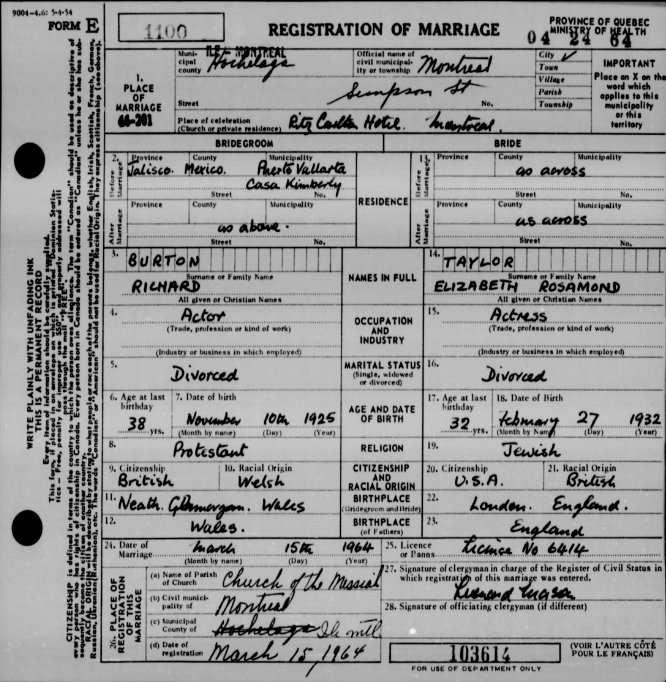 9004-4.6: 5-4-54
FORM E
1100
REGISTRATION OF MARRIAGE
PROVINCE OF QUEBEC
MINISTRY OF HEALTH
04 24 64
1.
PLACE
OF
MARRIAGE
66-201
Municipal county
ILE MONTREAL
Hochelaga
Official name of civil municipality or township
Montreal
City ✓
Town
Village
Parish
Township
IMPORTANT
Place an X on the
word which
applies to this
municipality
or this
territory
Street
Simpson St
No.
Place of celebration
(Church or private residence)
Ritz Carlton Hotel. Montreal
BRIDEGROOM
BRIDE
2.
Before Marriage
Province County Municipality
Jalisco. Mexico. Puerto Vallarta
Casa Kimberly
Street No.
After Marriage
Province County Municipality
as above.
Street No.
RESIDENCE
13.
Before Marriage
Province County Municipality
as across
Street No.
After Marriage
Province County Municipality
as across
Street No.
3.
BURTON
Surname or Family Name
RICHARD
All given or Christian Names
NAMES IN FULL
14.
TAYLOR
Surname or Family Name
ELIZABETH ROSAMOND
All given or Christian Names
4.
Actor
(Trade, profession or kind of work)
(Industry or business in which employed)
OCCUPATION
AND
INDUSTRY
15.
Actress
(Trade, profession or kind of work)
(Industry or business in which employed)
5.
Divorced
MARITAL STATUS
(Single, widowed
or divorced)
16.
Divorced
6. Age at last birthday
38 yrs.
7. Date of Birth
November 10th 1925
(Month by name) (Day) (Year)
AGE AND DATE
OF BIRTH
17. Age at last birthday
32 yrs.
18. Date of Birth
February 27 1932
(Month by Name) (Day) (Year)
8.
Protestant
RELIGION
19.
Jewish
9. Citizenship
British
10. Racial Origin
Welsh
CITIZENSHIP
AND
RACIAL ORIGIN
20. Citizenship
U.S.A.
21. Racial Origin
British
11.
Neath. Glamorgan. Wales
BIRTHPLACE
(Bridegroom and Bride)
22.
London. England.
12.
Wales.
BIRTHPLACE
(of Fathers)
23.
England
24. Date of Marriage
March 15th 1964
(Month by name) (Day) (Year)
25. Licence or Banns
Licence No 6414
26. PLACE OF
REGISTRATION
OF THIS
MARRIAGE
(a) Name of Parish of Church
Church of the Messiah
(b) Civil municipality of
Montreal
(c) Municipal County of
Hochelaga
(d) Date of registration
March 15, 1964
27. Signature of clergyman in charge of the Register of Civil Status in
which registration of this marriage was entered.
28. Signature of officiating clergyman (if different)
103614
FOR USE OF DEPARTMENT ONLY
(VOIR L'AUTRE CÔTÉ
POUR LE FRANÇAIS)
WRITE PLAINLY WITH UNFADING INK
THIS IS A PERMANENT RECORD
Every item of information should be carefully supplied.